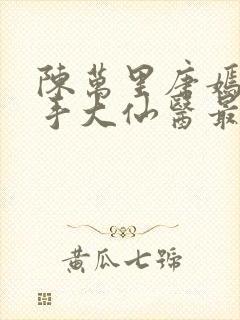 陳萬里唐嫣
手大仙醫最
黃瓜七號